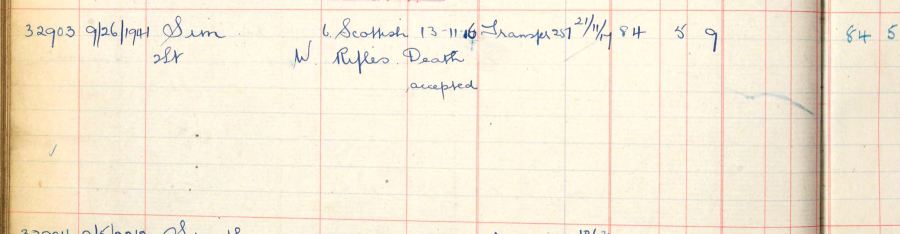 32903 9/26/1941 Sim 6. Scottish 13-11-16 Transfer 257 21/11/17 84 5 9 84 5
2Lt W. Rifles. Death
accepted